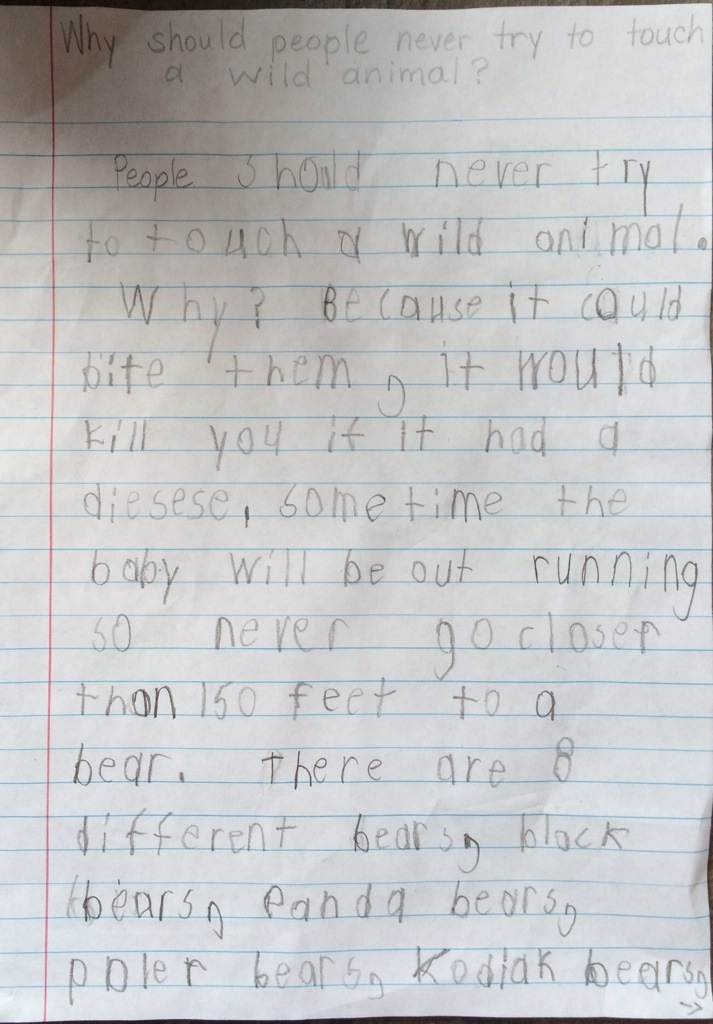 Why should people never try to touch
a wild animal?
People should never try
to touch a wild animal.
Why? Because it could
bite them, it would
kill you if it had a
diesese, sometime the
baby will be out running
so never go closer
than 150 feet to a
bear. there are 8
different bears, black
bears, Panda bears,
poler bears, Kodiak bears,
->